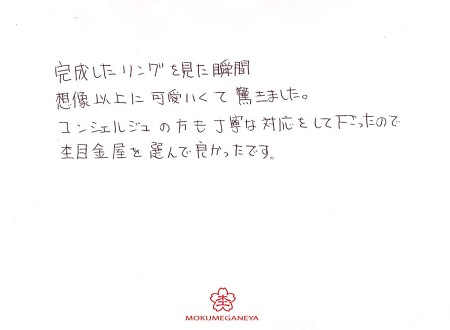 完成したリングを見た瞬間
想像以上に可愛いくて驚きました。
コンシェルジュの方も丁寧な対応をして下さったので
杢目金屋を選んで良かったです。
杢
MOKUMEGANEYA